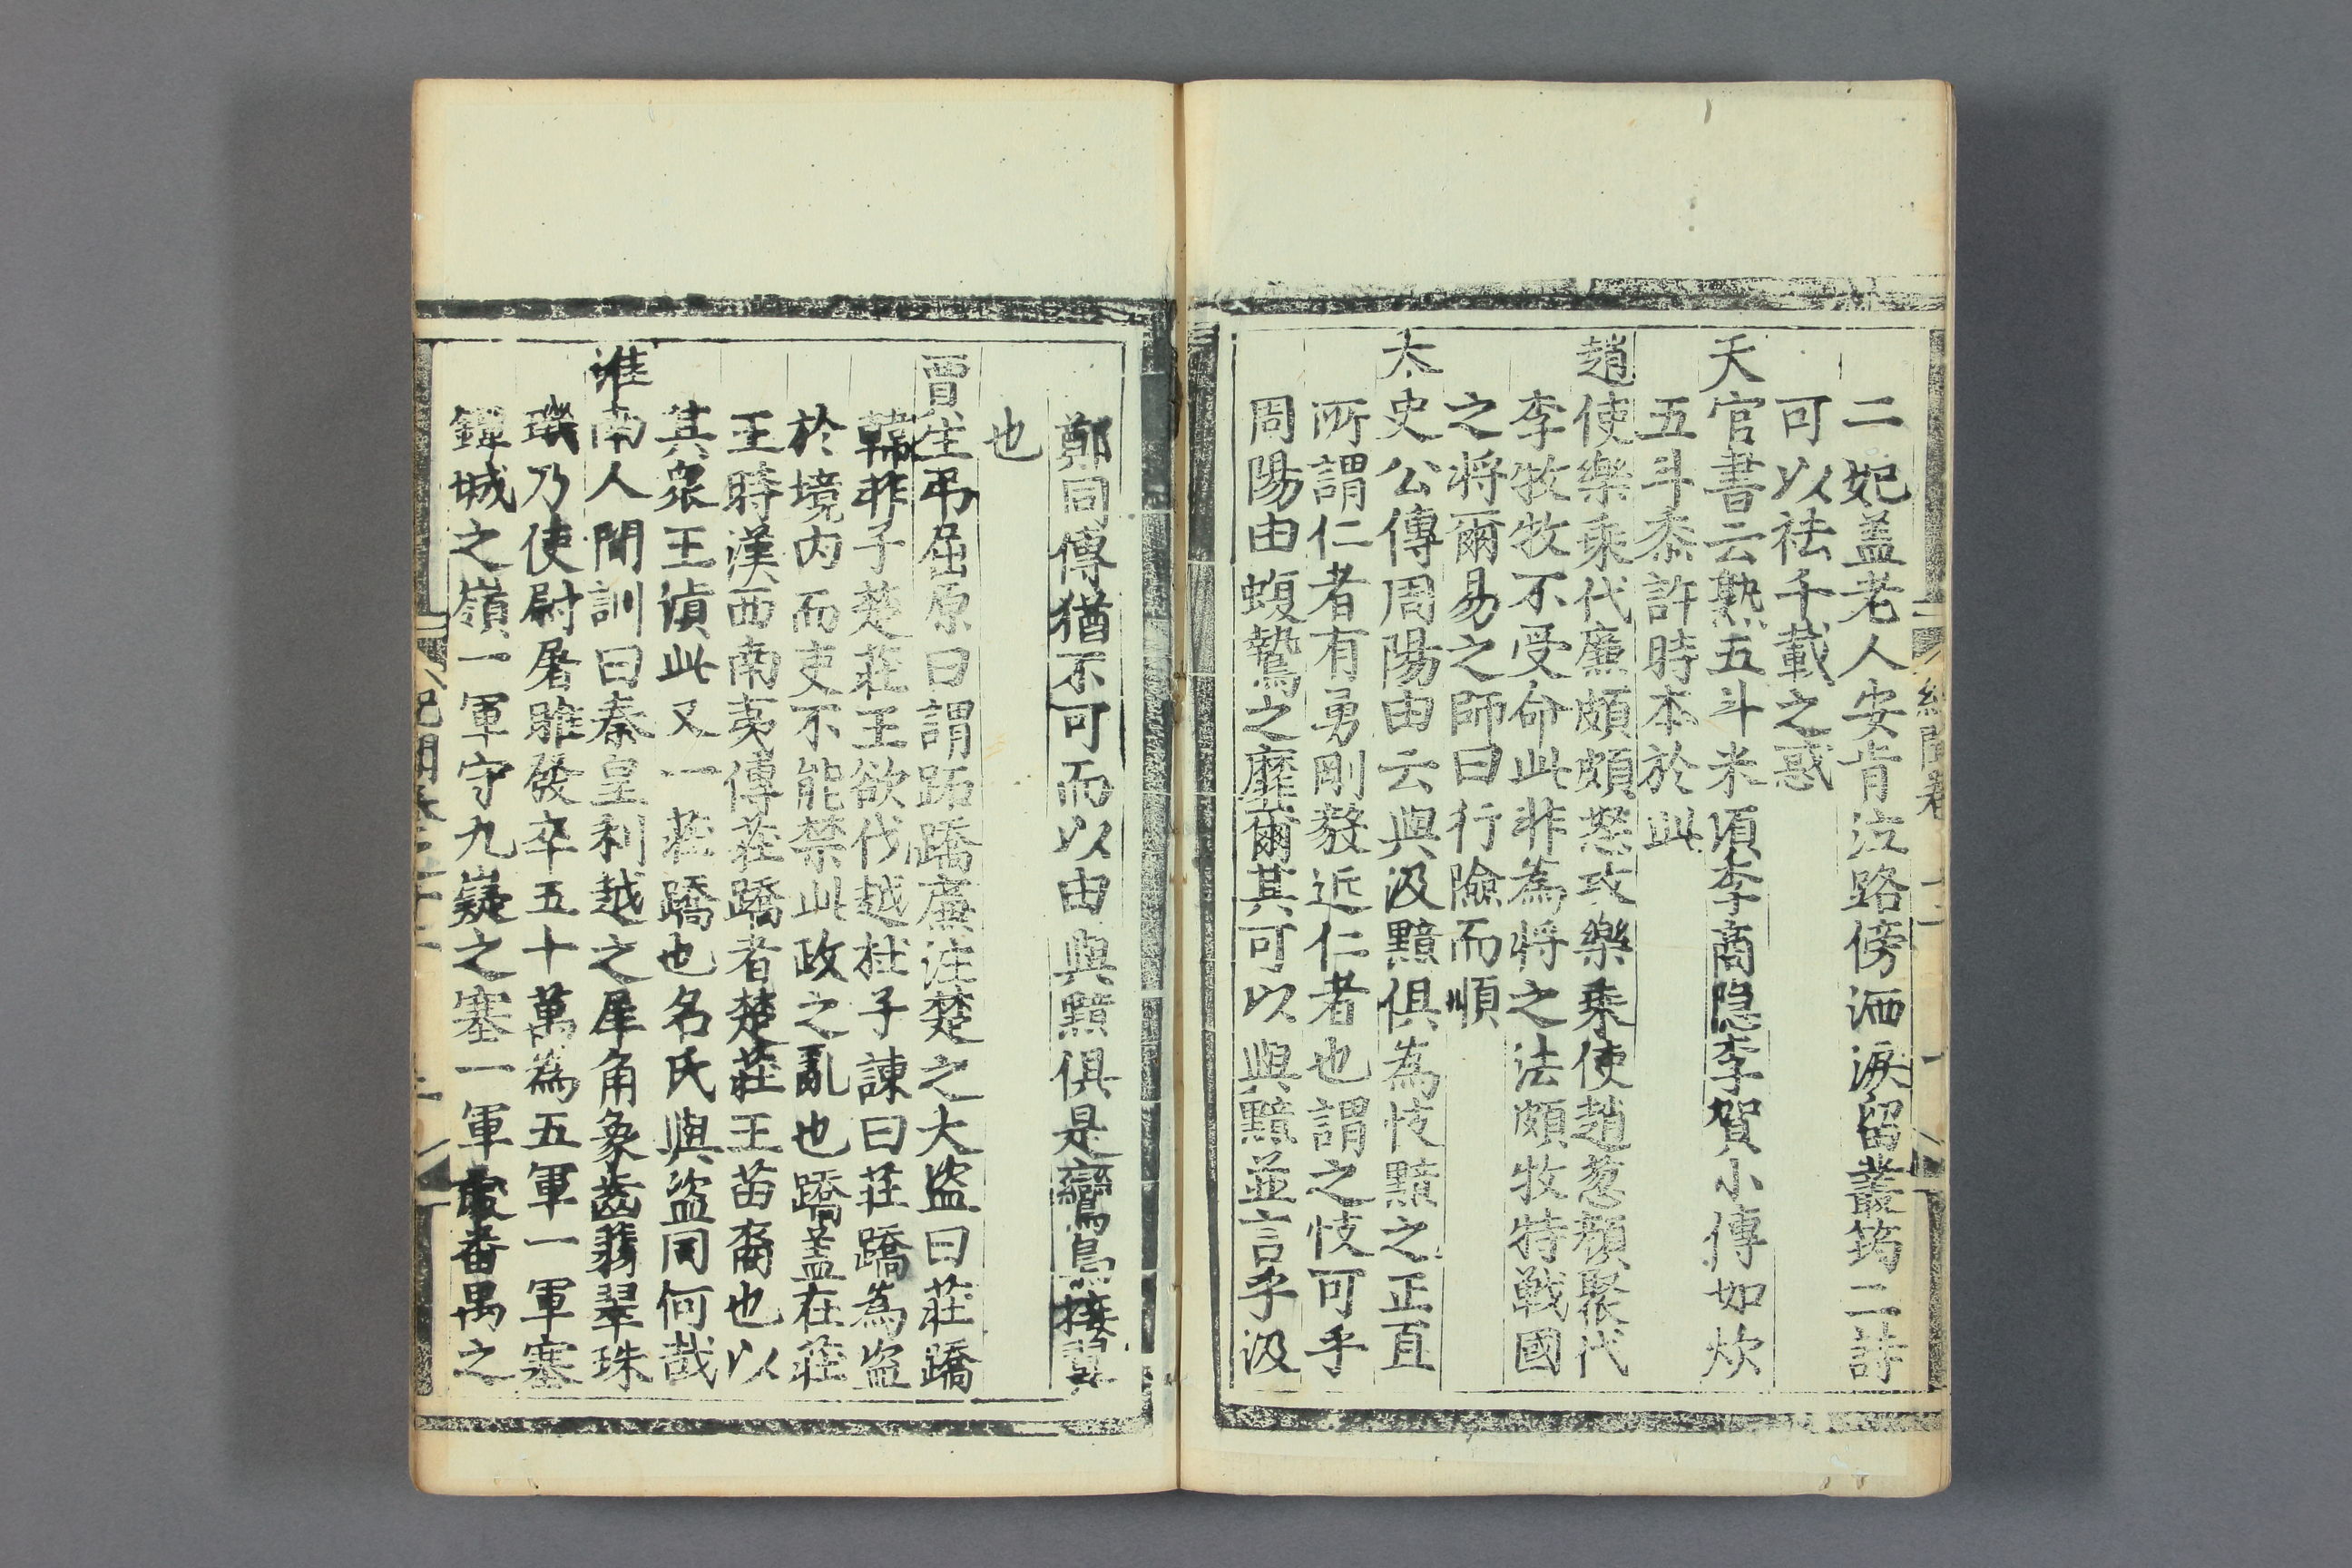 二妃盖老人安肯泣路傍洒淚留叢筠二詩
可以祛千載之惑
天官書云熟五斗米頃李商隐李賀小傳如炊
五斗黍許時本於此
趙使樂乘代廉頗頗怒攻樂乗使趙葱顔聚代
李牧牧不受命此非為將之法頗牧特戦國
之將爾易之師曰行險而順
太史公傳周陽由云與汲黯俱為忮黯之正直
所謂仁者有勇剛毅近仁者也謂之忮可乎
周陽由蝮鷙之靡爾其可以與黯並言乎汲
鄭同傳猶不可而以由與黯俱是鸞鳥接翼
也
賈生弔屈原曰謂跖蹻廉注楚之大盗曰莊蹻
韓非子楚莊王欲伐越杜子諫曰莊蹻為盗
於境内而吏不能禁此政之亂也蹻盖在莊
王時漢西南夷傳莊蹻者楚莊王苗裔也以
其衆王滇此又一莊蹻也名氏與盗同何哉
淮南人間訓曰秦皇利越之犀角象齒翡翠珠
璣乃使尉屠睢發卒五十萬為五軍一軍塞
鐔城之嶺一軍守九嶷之塞一軍處番禺之